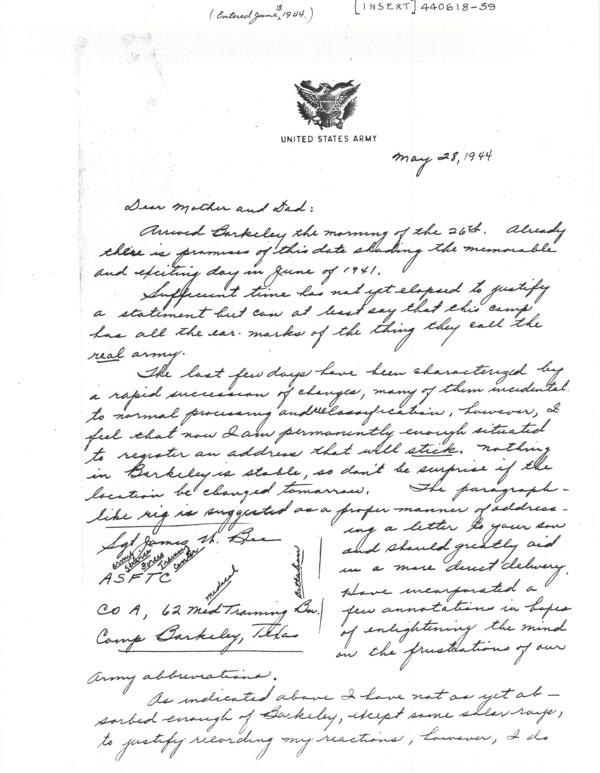 (Entered June 18, 1944.)
[INSERT] 440618-39
UNITED STATES ARMY
May 28, 1944
Dear Mother and Dad:
Arrived Barkeley the morning of the 26th. Already
there is promises of this date shading the memorable
and exciting day in June of 1941.
Sufficient time has not yet elapsed to justify
a statement but can at least say that this camp
has all the ear-marks of the thing they call the
real army.
The last few days have been characterized by
a rapid succession of changes, many of them incidental
to normal processing and reclassification, however, I
feel that now I am permanently enough situated
to register an address that will stick. Nothing
in Barkeley is stable, so don't be surprise if the
location be changed tomorrow. The paragraph-
like rig is suggested as a proper manner of address-
ing a letter to your son
and should greatly aid
in a more direct delivery.
Have incorporated a
few annotations in hopes
of enlightening the mind
on the frustrations of our
Sgt James W. Bee
Army Service Forces Training Center
ASFTC
medical
Battalion
CO A, 62 Med Training Bn.
Camp Barkeley, Texas
Army abbreviations.
As indicated above I have not as yet ab-
sorbed enough of Barkeley, except some solar rays,
to justify recording my reactions, however, I do